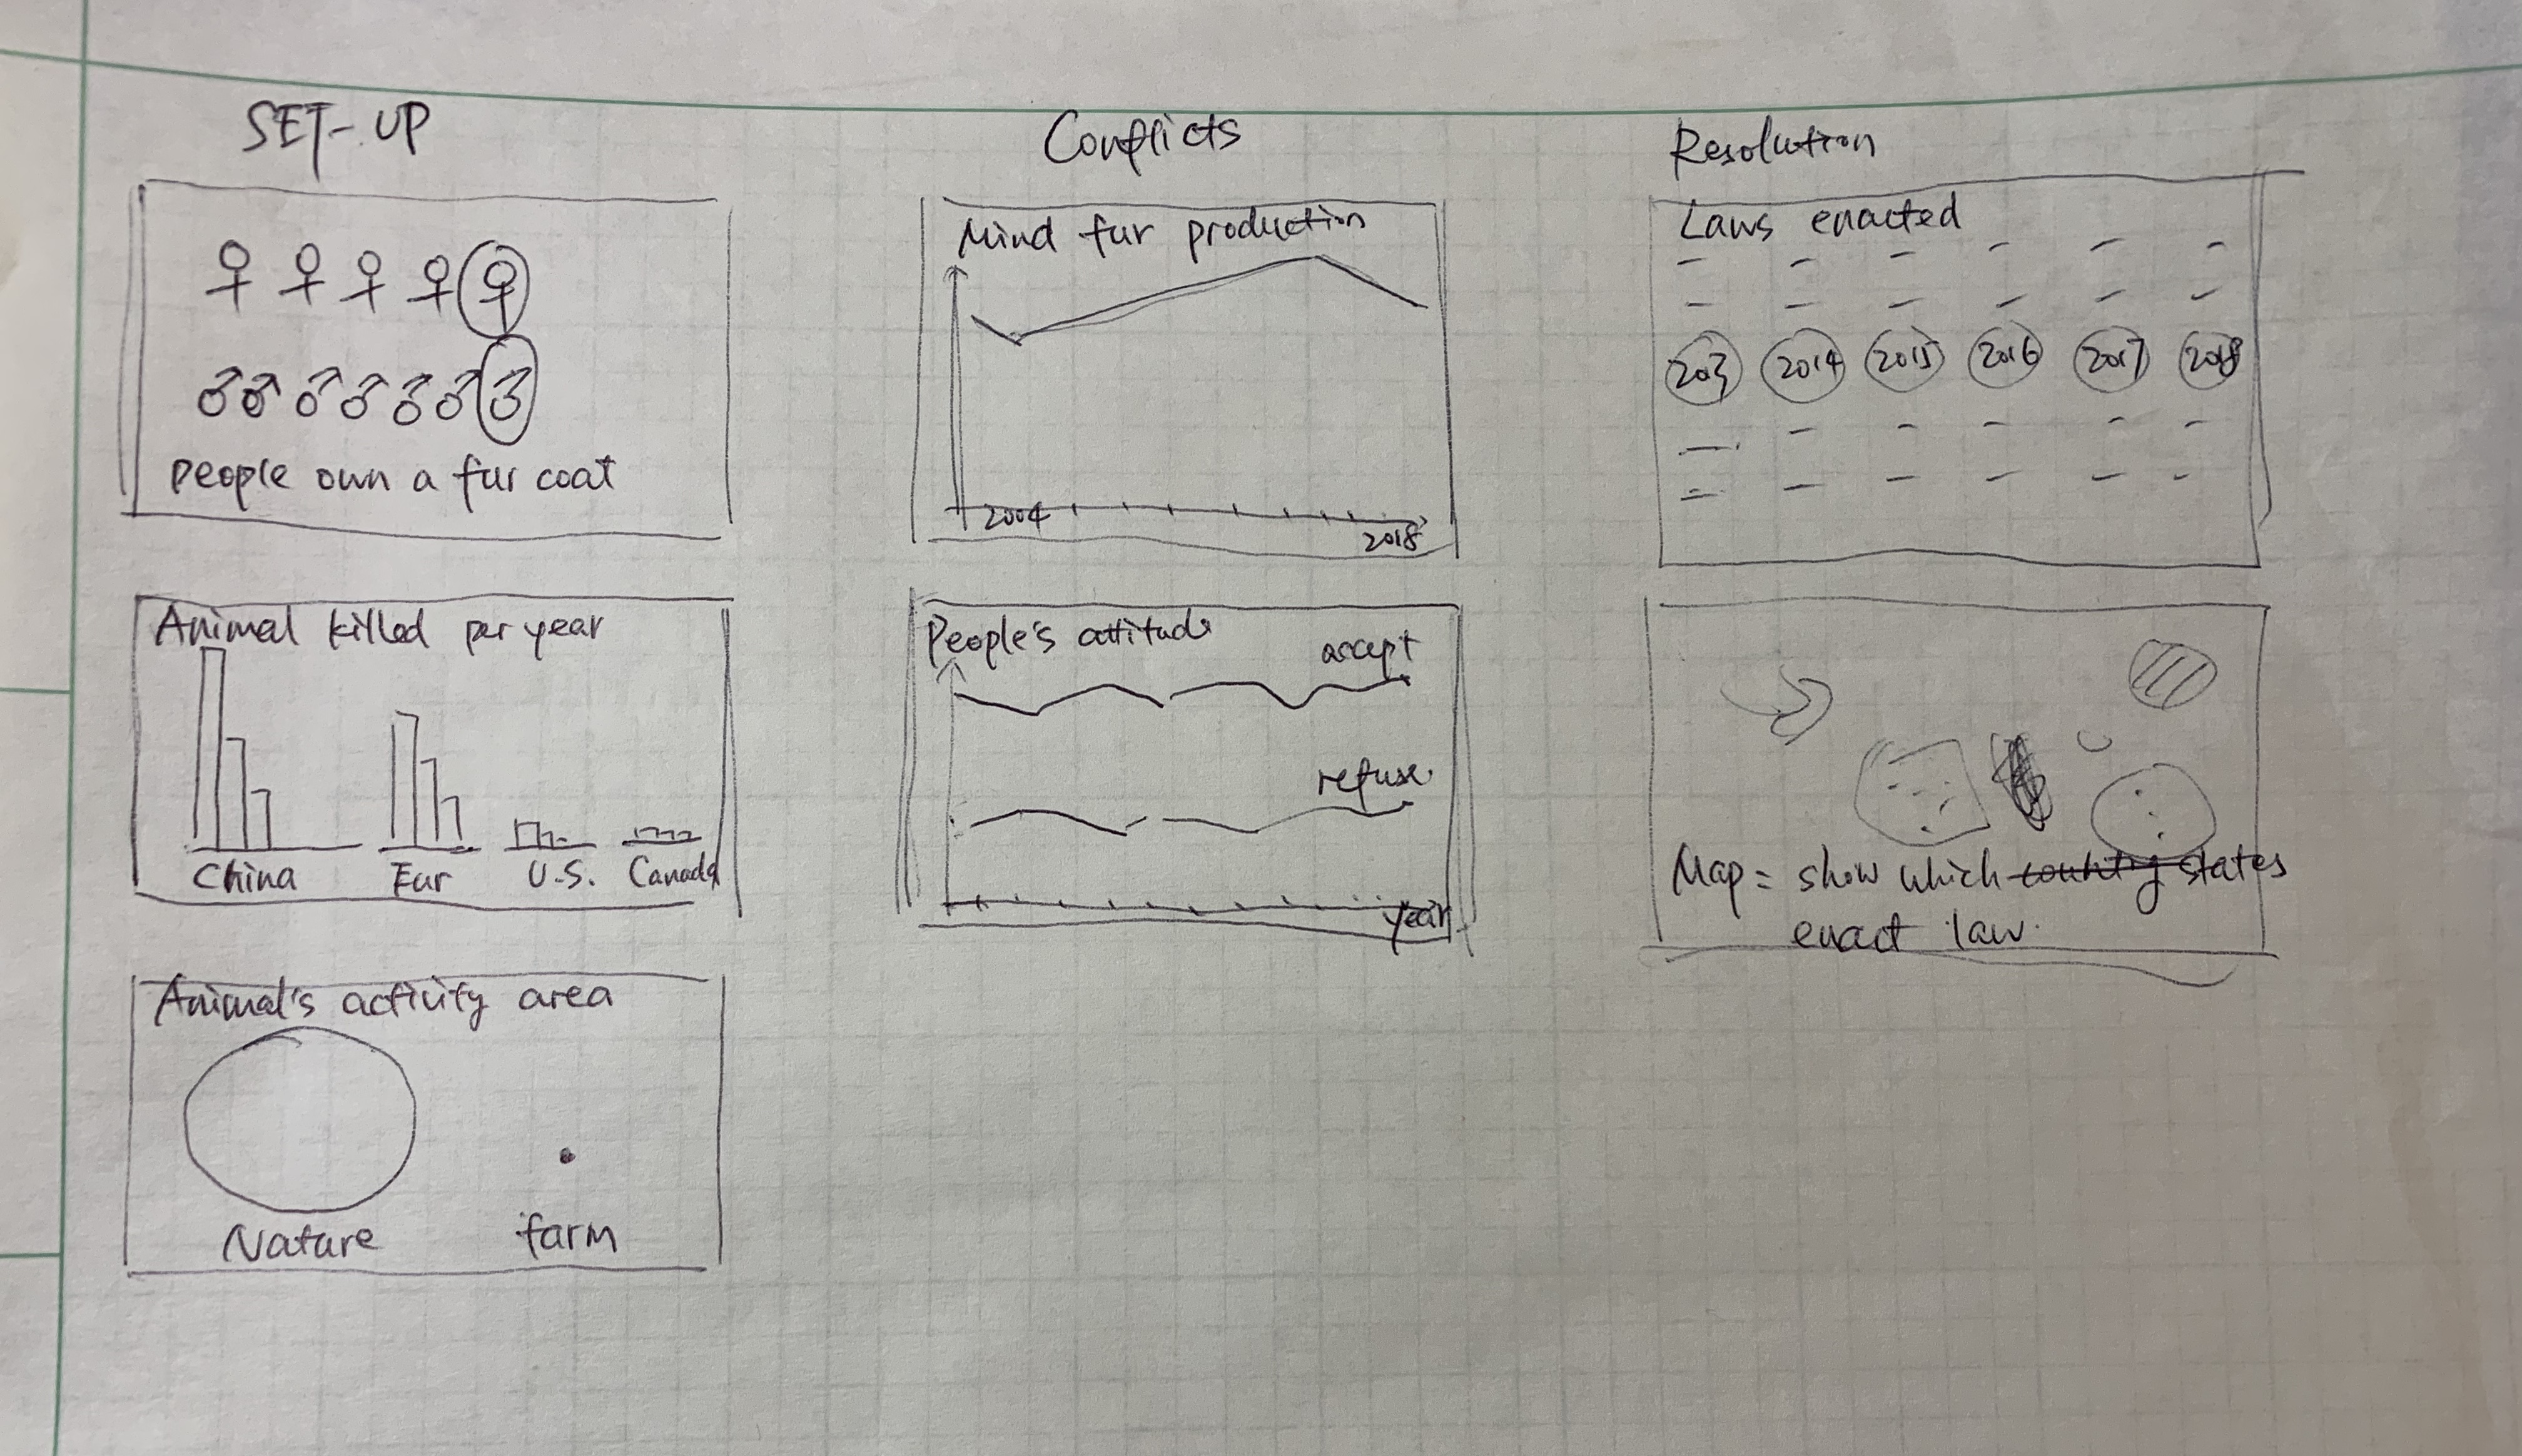 SET-UP
people own a fur coat
Animal killed per year
China Eur U.S. Canada
Animal's activity area
Nature farm
Conflicts
Mind fur production
2004
2018
People's attitude
accept
refuse
year
Resolution
Laws enacted
2013 2014 2015 2016 2017 2018
Map = show which country states
enact law.